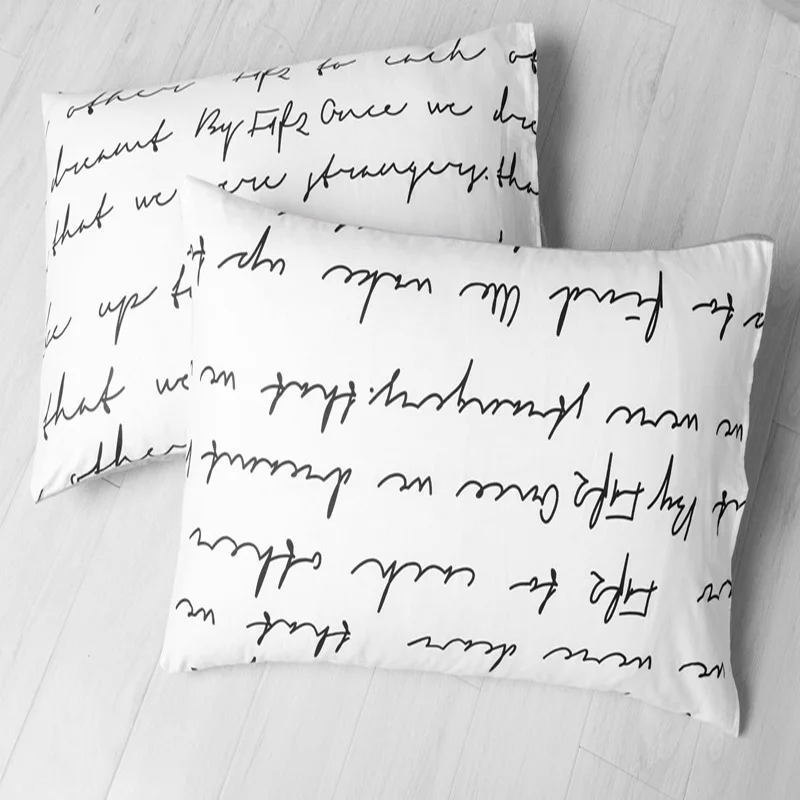 other to each
dreamt By Once we dre
that we were strangers. tha
up
that we
other
we were dear that we
to each other
By Once we dreamt
we were strangers. that we
to find We wake up